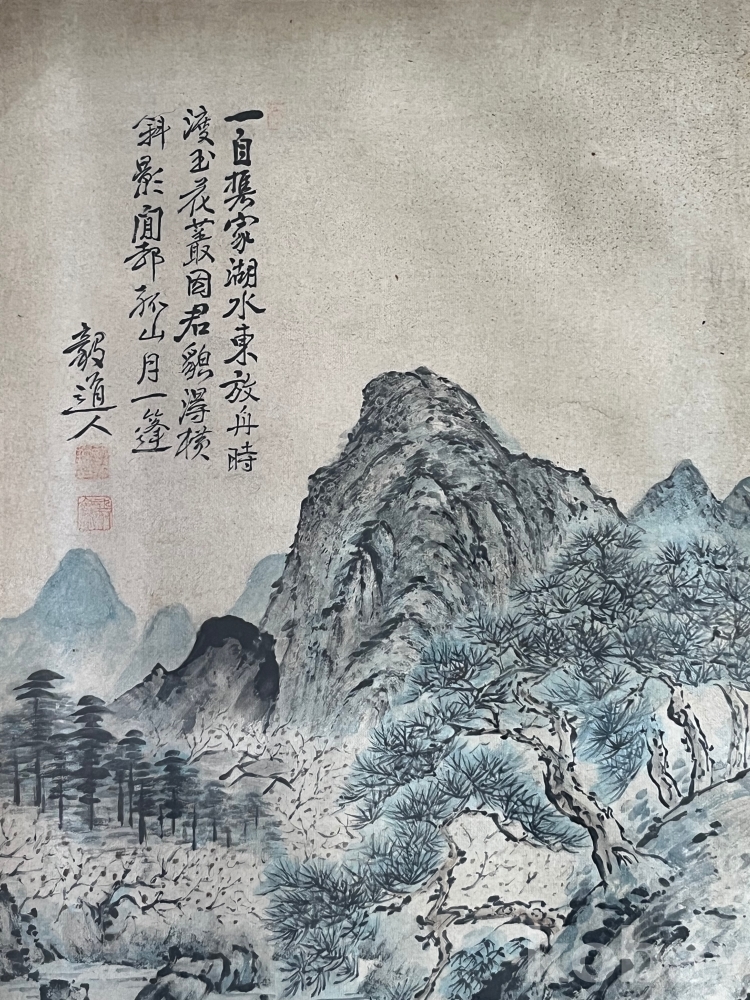 一自携家湖水東放舟時
渡玉花叢因君貌得横
斜影閒郤孤山月一篷
毅道人